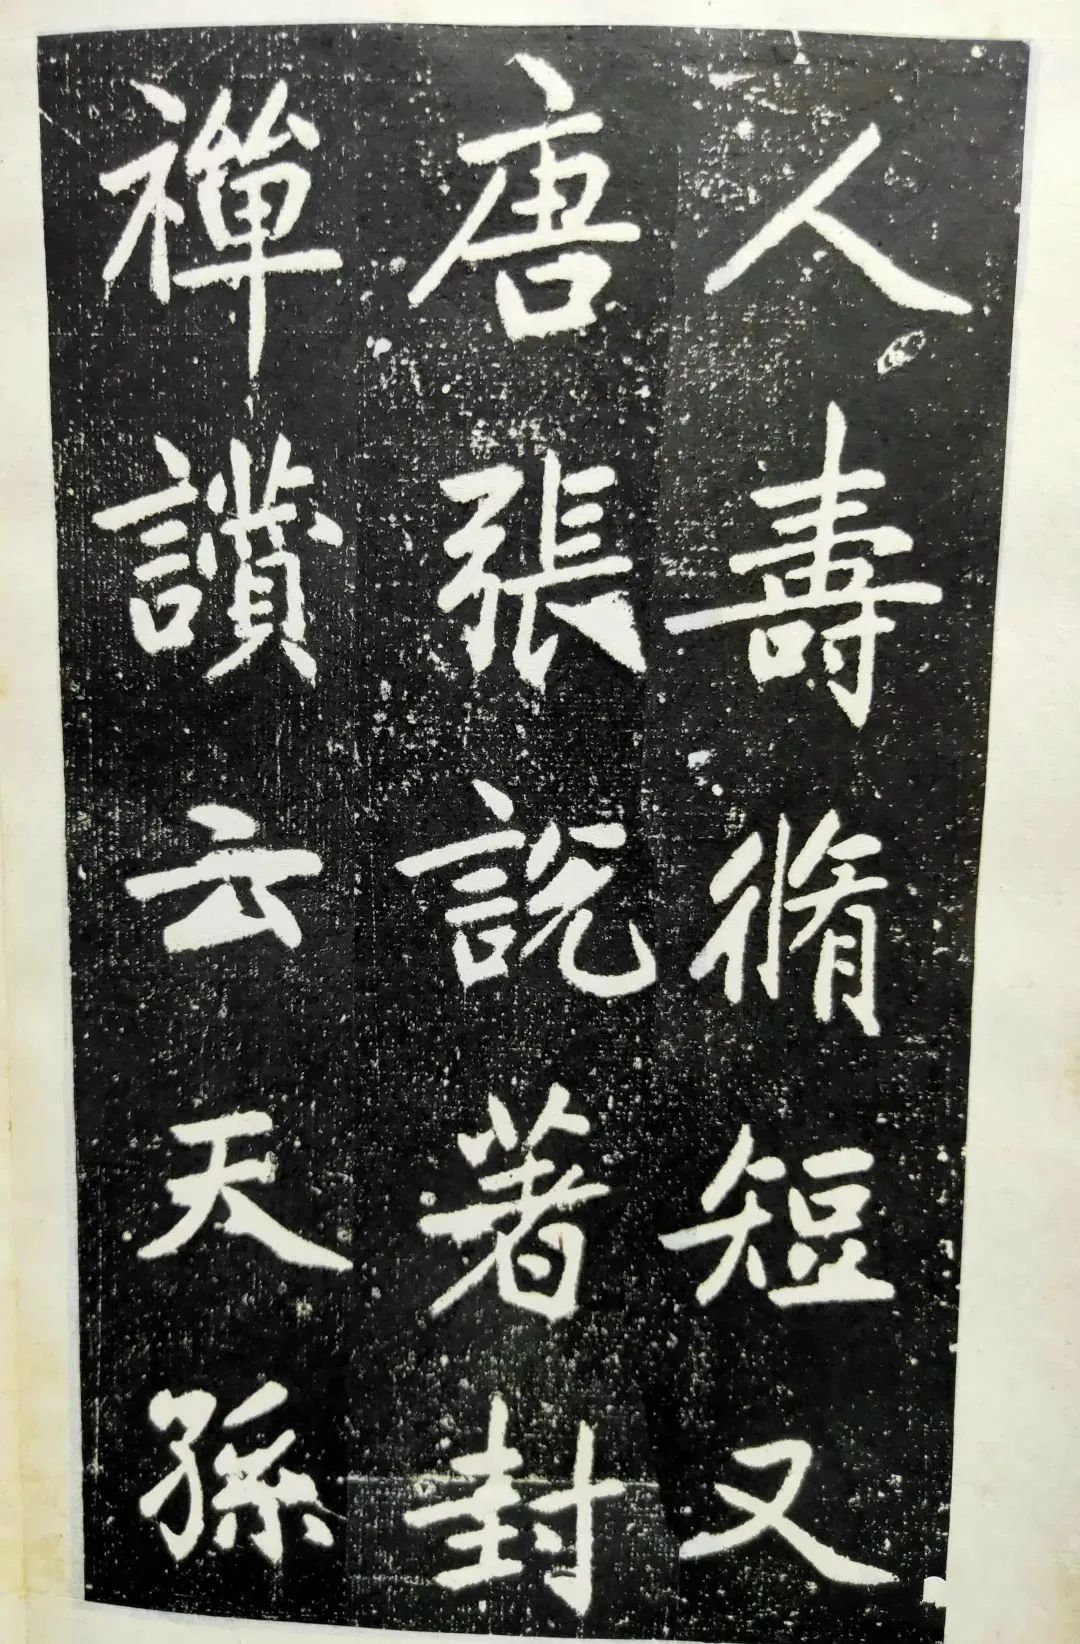 人壽脩短又
唐張說著封
禪讃云天孫